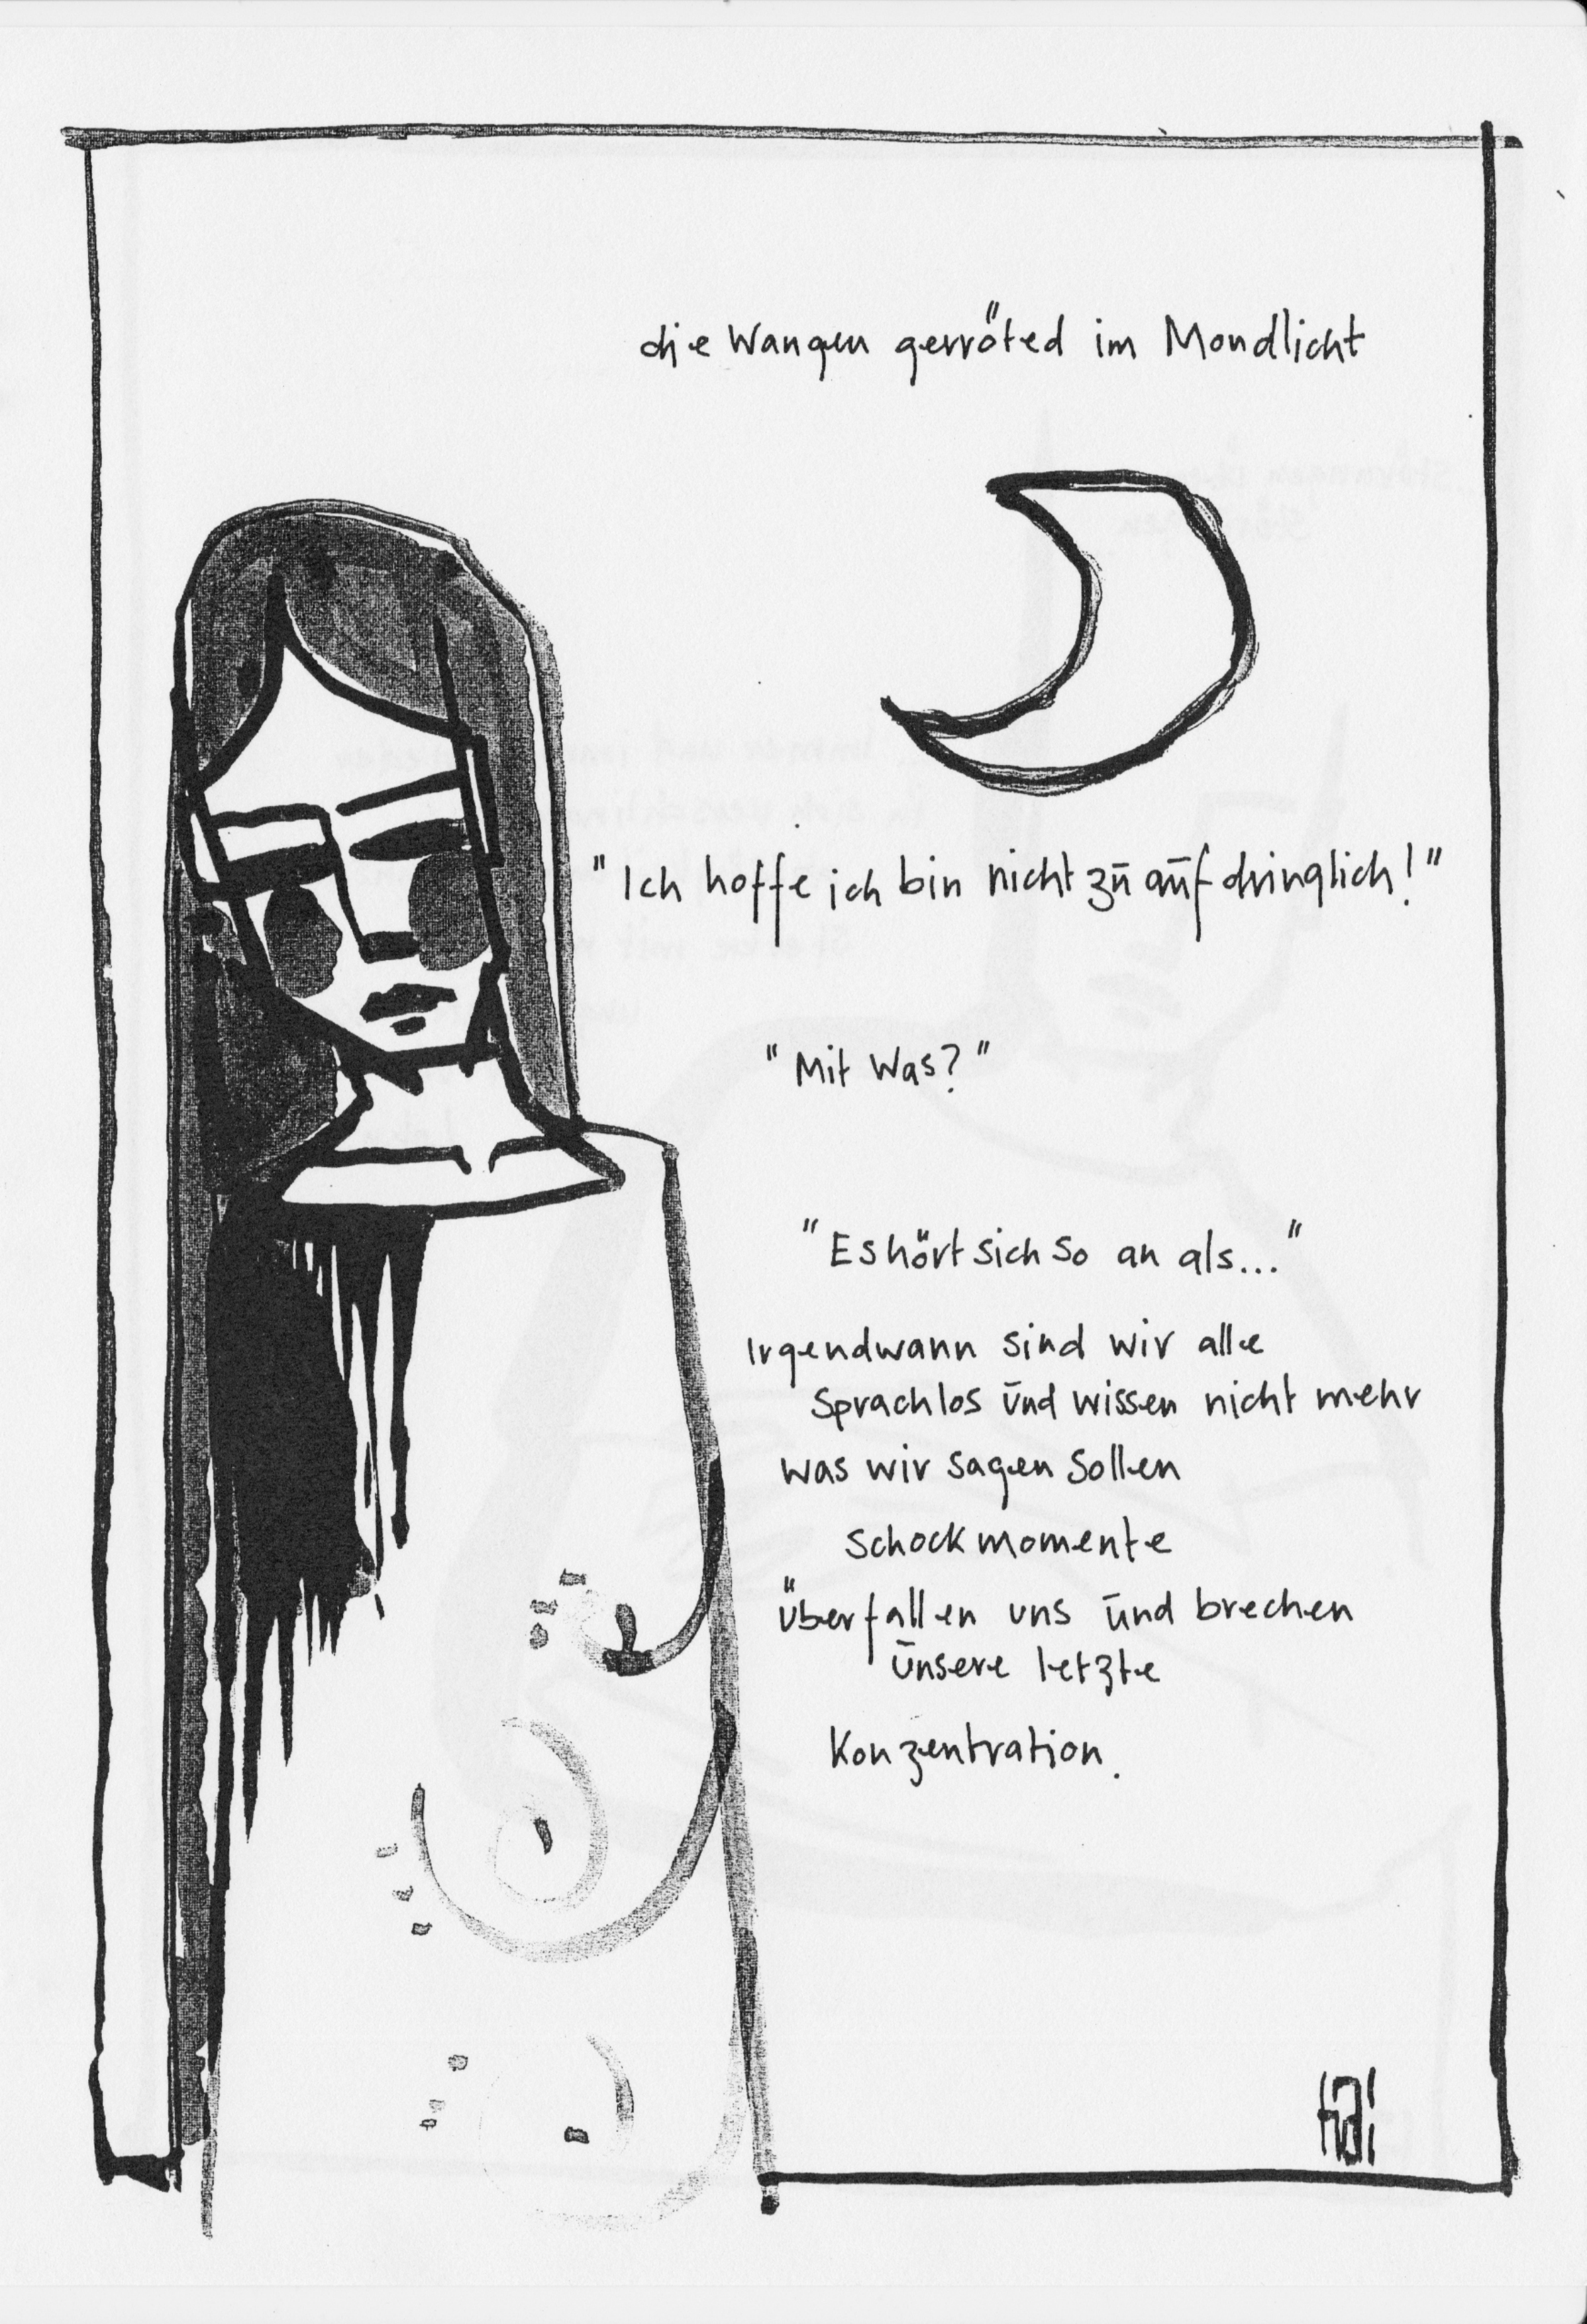 die Wangen gerröted im Mondlicht
"Ich hoffe ich bin nicht zū aūfdringlich!"
"Mit Was?"
"Es hört sich so an als..."
Irgendwann sind wir alle
sprachlos ūnd wissen nicht mehr
was wir sagen sollen
Schockmomente
überfallen uns ūnd brechen
ūnsere letzte
Konzentration.